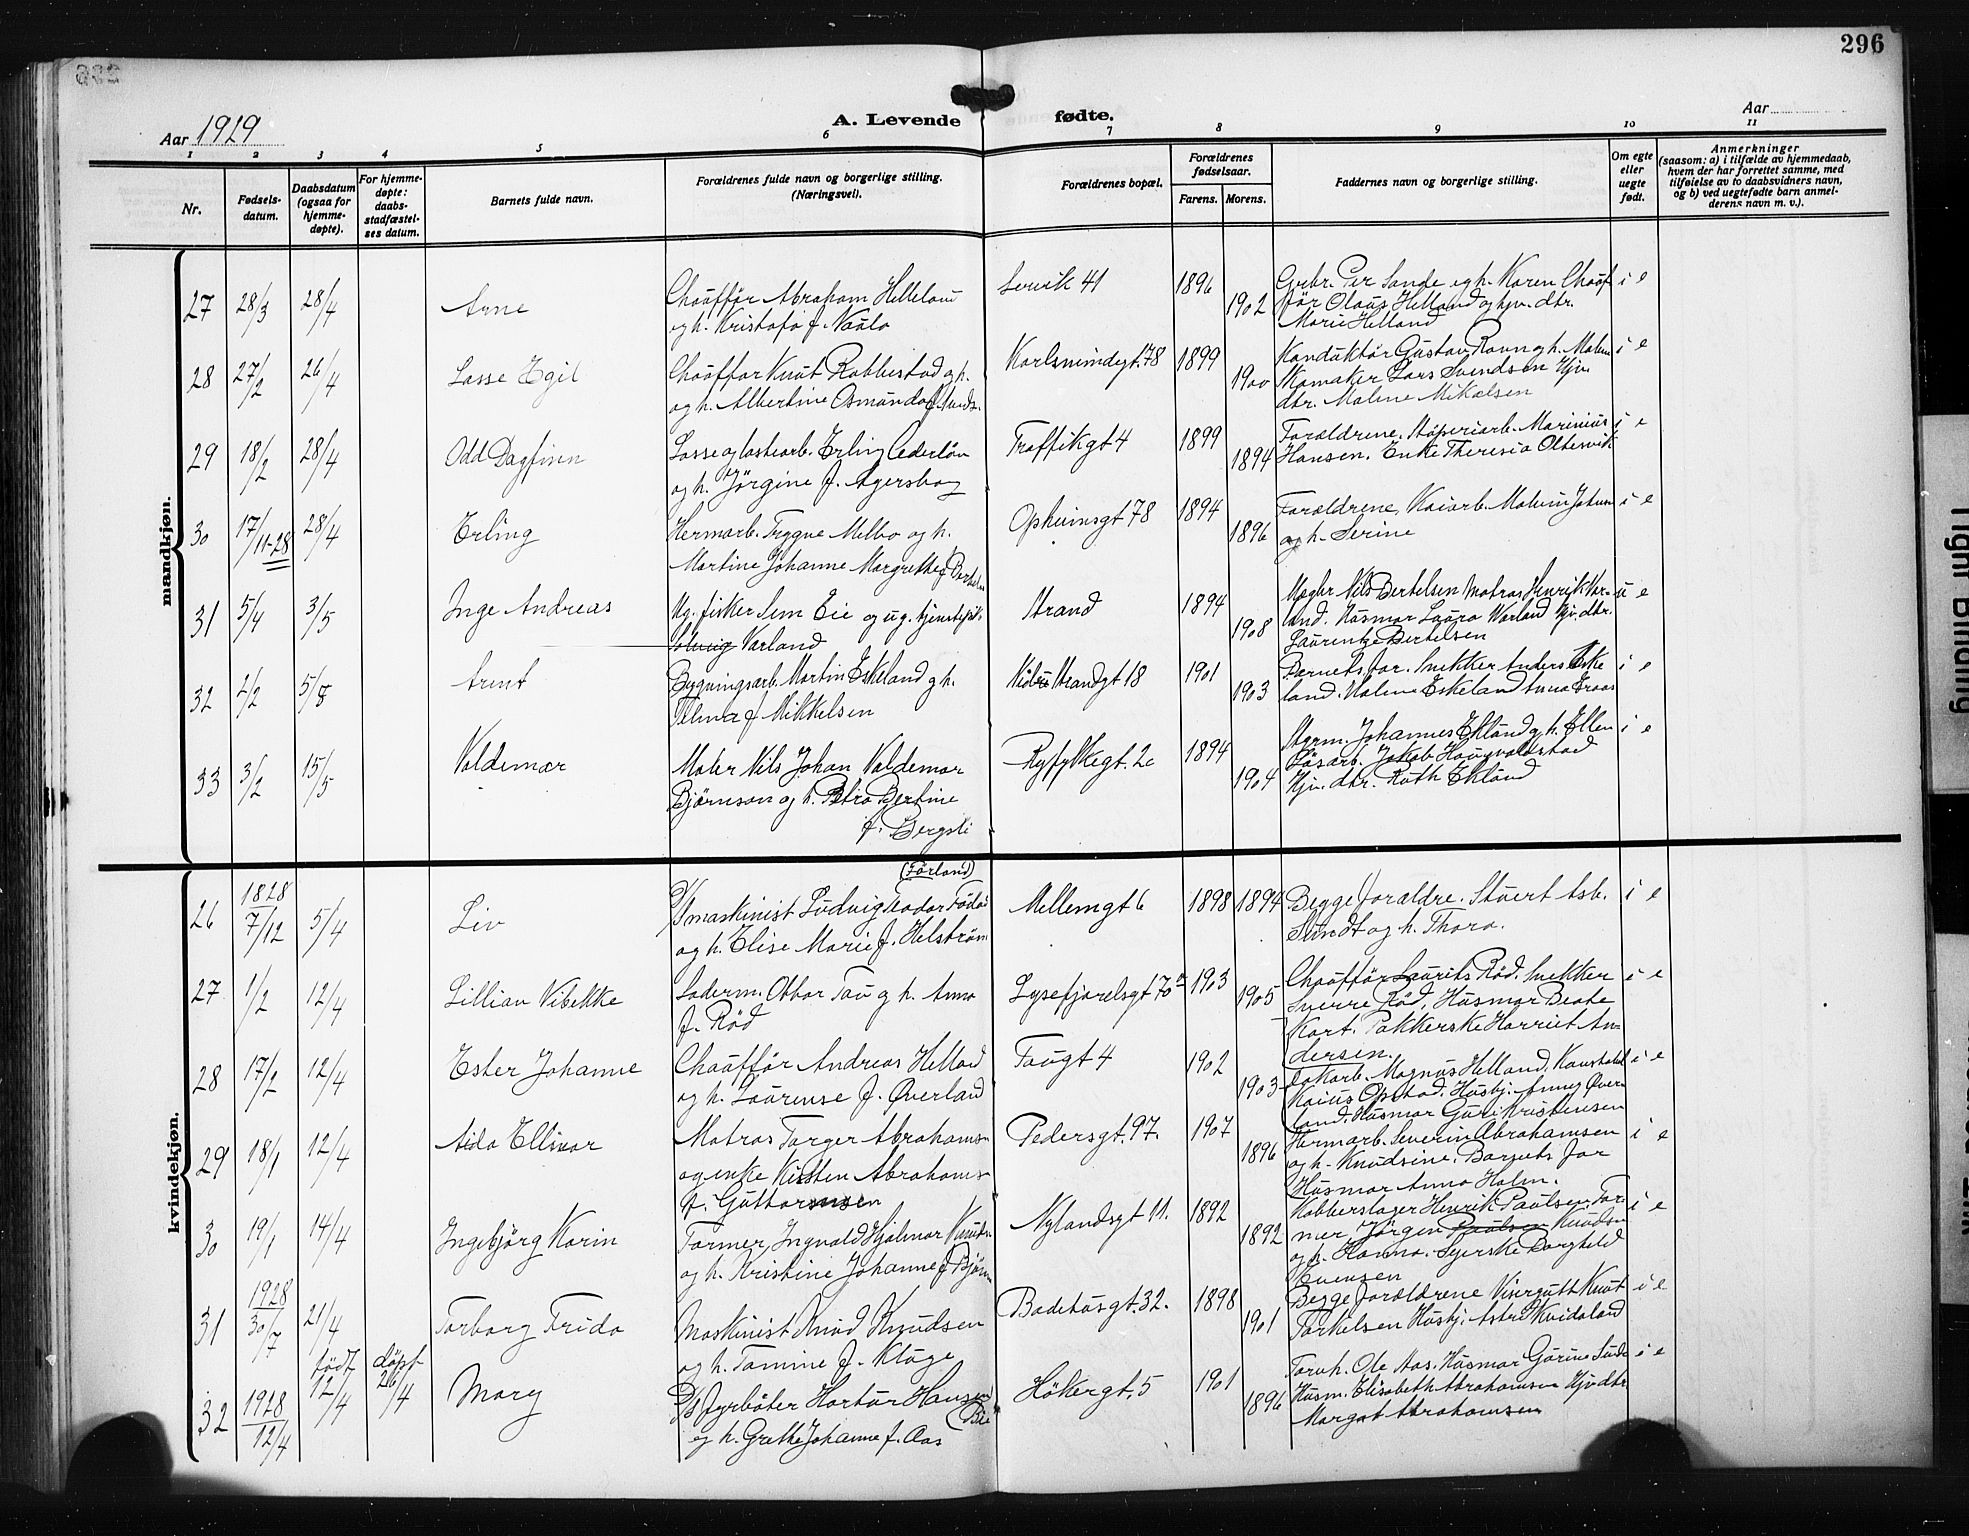 296
Aar 1929
A. Levende fødte.
Aar
1 2 3 4 5 6 7 8 9 10 11
Nr.
Fødsels-
datum.
Daabsdatum
(ogsaa for
hjemme-
døpte).
For hjemme-
døpte:
daabs-
stadfæstel-
ses datum.
Barnets fulde navn.
Forældrenes fulde navn og borgerlige stilling.
(Næringsvei).
Forældrenes bopæl.
Forældrenes
fødselsaar.
Farens. Morens.
Faddernes navn og borgerlige stilling.
Om egte
eller
uegte
født.
Anmerkninger
(saasom: a) i tilfælde av hjemmedaab,
hvem der har forrettet samme, med
tilføielse av to daabsvidners navn,
og b) ved uegtefødte barn anmel-
derens navn m. v.).
mandkjøn.
27 28/3 28/4 Arne
Chauffør Abraham Helleland
og h. Kristofa f.
41 1896 1902
Per Sande og h. Karen Chauf
før Olaus Helland og hjv. dtr.
Marie Helland
i e
28 27/2 26/4 Lasse Egil
Chauffør Knut Rabbestad og h.
og h. Albertine
Karlsmindegt. 78 1899 1900
Konduktør Gustav Ravn og h. Malene
Skomaker Lars Svendsen Hjv.
dtr. Malene Mikalsen
i e
29 18/2 28/4 Odd Dagfinn
Losse og lastearb. Erling Cederløv
og h. Jørgine f. Agersborg
Traffikgt 4 1899 1894
Forældrene. Støperiarb. Marinius
Hansen. Enke Theresia Oltesvik
i e
30 17/11-28 28/4 Erling
Hermarb. Trygve Melbo og h.
Martine Johanne Margrethe f.
Opheimsgt 78 1894 1896
Forældrene, Kaiarb.
og h. Serine
i e
31 5/4 3/5 Inge Andreas
Ug. fisker Sem Eie og ug. tjenestepik.
Solveig Varland
Strand 1894 1908
Megler Nils Bertelsen Matros Henrik Var-
land. Husmor Laura Varland Hjv. dtr.
Laurentze Bertelsen
u e
32 2/2 5/8 Arent
Bygningsarb. Martin Eskeland og h.
Telma f. Mikkelsen
Strandgt 18 1901 1903
Barnets far. Snekker Anders Eske
land. Malene Eskeland Anna
i e
33 3/2 15/5 Valdemar
Maler Nils Johan Valdemar
Bjørnson og h. Petra Bertine
f. Bergsli
Ryfylkegt. 2c 1894 1904
Styrm. Johannes Eklund og h. Ellen
Løsarb. Jakob Haugvaldstad
Hjv. dtr. Ruth Eklund
i e
kvindekjøn.
26 1828 7/12 5/4 Liv
(Førland)
D/S maskinist Ludvig Teodor
og h. Elise Marie f. Helstrøm
Mellemgt 6 1898 1894
Begge foraldre. Stuert Asb.
Sundt og h. Thora.
i e
27 1/2 12/4 Lillian Vibekke
Laderm. Ottar Tau og h. Anna
f. Rød
Lysefjordsgt 70 1903 1905
Chauffør Laurits Rød. Snekker
Sverre Rød, Husmor Beate
Kort. Pakkerske Harriet An
dersen.
i e
28 17/2 12/4 Ester Johanne
Chauffør Andreas Helland
og h. Laurense f. Øverland
Taugt 4 1902 1903
Magnus Helland,
Kaius Opstad. Husbj. Anny Øver
land. Husmor Guri Kristensen
i e
29 18/1 12/4 Aida Ellinor
Matros Torger Abrahams
og enke Kirsten Abrahams
f. Guttormsen
Pedersgt. 97. 1907 1896
Hermarb. Severin Abrahamsen
og h. Knudsine. Barnets far
Husmor Anna Holm.
i e
30 19/1 14/4 Ingebjörg Karin
Formér, Ingvald Hjalmar Knuds
og h. Kristine Johanne f.
Nylandsgt 11. 1892 1892
Kobberslager Henrik Paulsen. For
mer, Jørgen Paulsen Knudsen
og h. Hanna. Syerske Borghild
Evensen
i e
31 1928 30/7 21/4 Torborg Frida
Maskinist Knud Knudsen
og h. Tomine f. Kluge
Badehusgt. 32. 1898 1901
Begge forældrene Visergutt Knut
Torkelsen Husbj. Astri Kvidaland
i e
32 1928 12/4 født 12/4 døpt 26/4 Mary
D/S fyrbøter Hartur Hansen
og h. Grethe Johanne f. Aas
Høkergt. 5 1901 1896
Forvh. Ole Aas. Husmor Gurine
Husm. Elisabeth Abrahamsen Hjv. dtr.
Margot Abrahamsen
i e